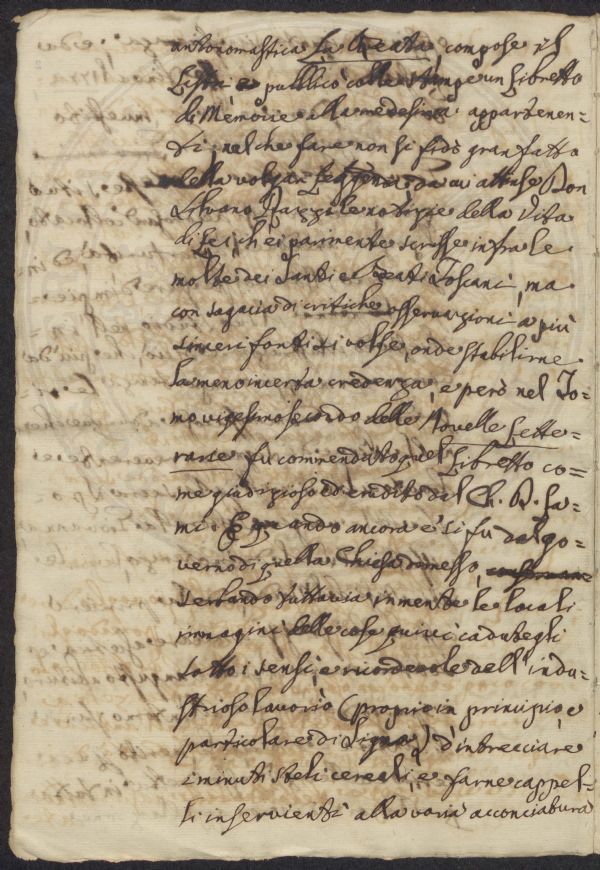 antonomastica La Beata, compose il
Lastri e pubblicò colle stampe un libretto
di Memorie alla medesima appartenen=
ti; nel che fare non si fidò gran fatto
della volgar leggenda da cui attinse Don
Silvano Razzi le notizie della Vita
di Lei, ch'ei parimente scrisse infra le
molte dei Santi e Beati Toscani, ma
con sagacia di critiche osservazioni a più
sinceri fonti si volse, onde stabilirne
la meno incerta credenza, e però nel To=
mo vigesimosecondo delle Novelle Lette=
rarie fu commendato quel Libretto co=
me giudizioso ed erudito dal Ch. D. La=
mi. E quando ancora e' si fu dal go=
verno di quella Chiesa dimesso,
serbando tuttavia in mente le locali
immagini delle cose quivi cadutegli
sotto i sensi, e ricordevole dell'indu=
strioso lavorio (proprio in principio, e
particolare di Signa) d'intrecciare
i minuti steli cereali, e farne cappel=
li inservienti alla varia acconciatura